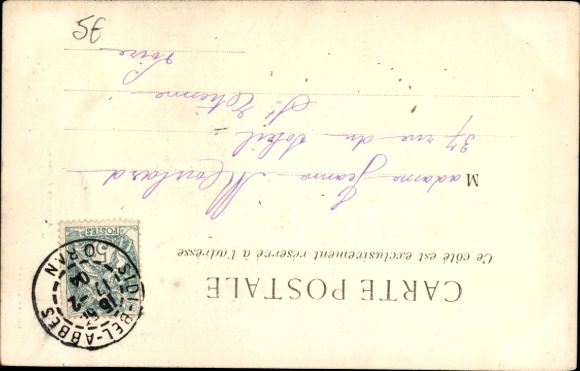 CARTE POSTALE
Ce côté est exclusivement réservé à l'adresse
Madame Jeanne
37 rue du Soleil
St Etienne
Loire
5€
5
POSTES
SIDI-BEL-ABBES
ORAN
04